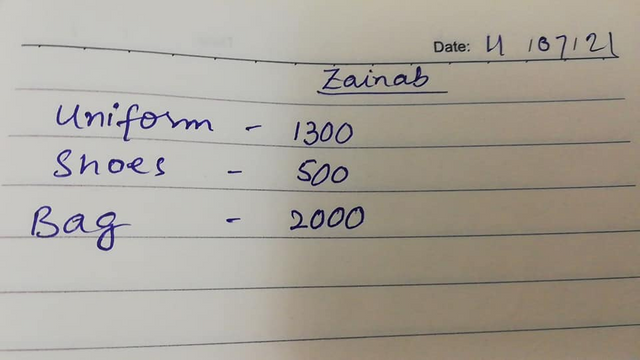 Date: 4/07/21
Zainab
Uniform - 1300
Shoes - 500
Bag - 2000